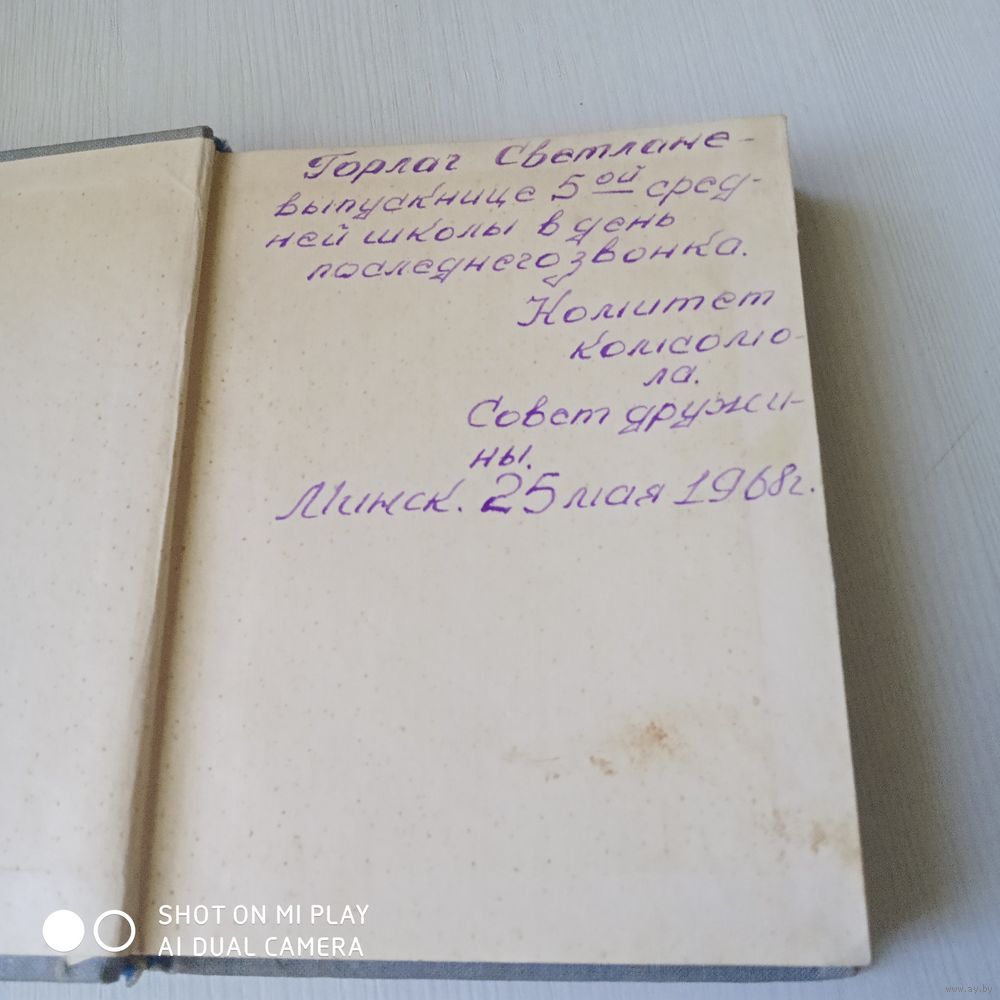 Горлач Светлане-
выпускнице 5ой сред-
ней школы в день
последнего звонка.
Комитет
комсомо-
ла.
Совет дружи-
ны.
Минск. 25 мая 1968г.
SHOT ON MI PLAY
AI DUAL CAMERA
www.ay.by